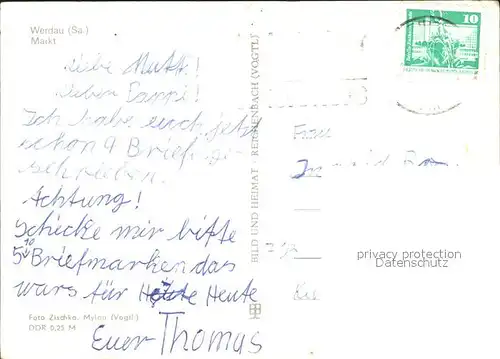 Werdau (Sa.)
Markt
Liebe Mutti!
Lieber Pappi!
Ich habe euch jetzt
schon 9 Briefe ge-
schrieben.
Achtung!
Schicke mir bitte
5 10 Briefmarken das
wars für Heute Heute
Euer Thomas
Foto Zischka, Mylau (Vogtl.)
DDR 0,25 M
BILD UND HEIMAT REICHENBACH (VOGTL)
10
Frau
privacy protection
Datenschutz